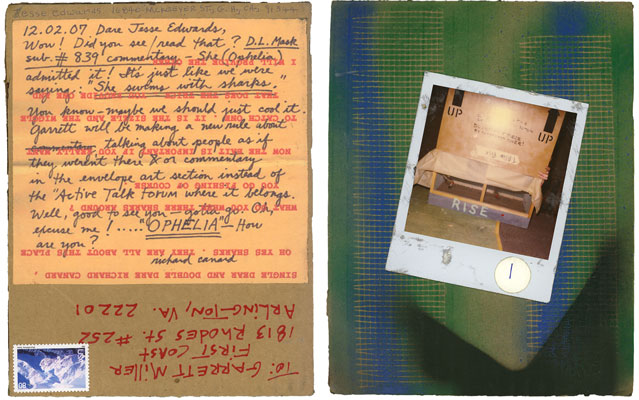 12.02.07 Dare Jesse Edwards,
Wow! Did you see/read that? D.L. Mask
sub. # 839 commentary - She (Ophelia)
admitted it! It's just like we were
saying: "She swims with sharks."
You know - maybe we should just cool it.
Garrett will be making a new rule about
talking about people as if
they weren't there &/or commentary
in the envelope art section instead of
the "Active Talk forum where it belongs.
Well, good to see you - gotta go. Oh,
excuse me! ....."OPHELIA" - How
are you?
richard canard
SINGLE DEAR AND DOUBLE DARE RICHARD CANARD
OH YES SHARKS . THEY ARE ALL ABOUT THIS PLACE
WHAT DO YOU DO WHEN THERE SHARKS AROUND ?
YOU GO FISHING OF COURSE
NOW THE BAIT IS IMPORTANT IF YOU REALLY WANT
TO CATCH ONE . IT IS THE SIZZLE AND THE WIGGLE
THAT DOES THE
I WILL PROVIDE THE
TO: GARRETT MILLER
FIRST COAST
1813 RHODES ST. #252
ARLINGTON, VA. 22201
UP
UP
RISE
1